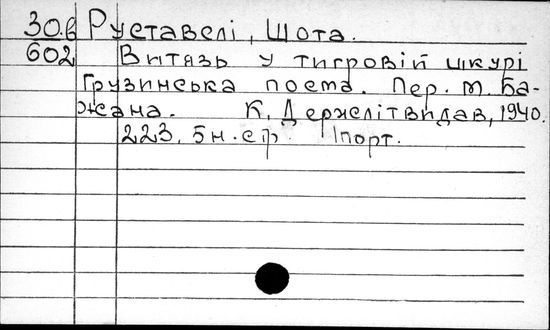 30.в Руставелі, Шота.
602 Витязь у тигровій шкурі
Грузинська поема. Пер. М. Ба-
жана. К. Держлітвидав, 1940.
223, 5 н. стр. 1 порт.